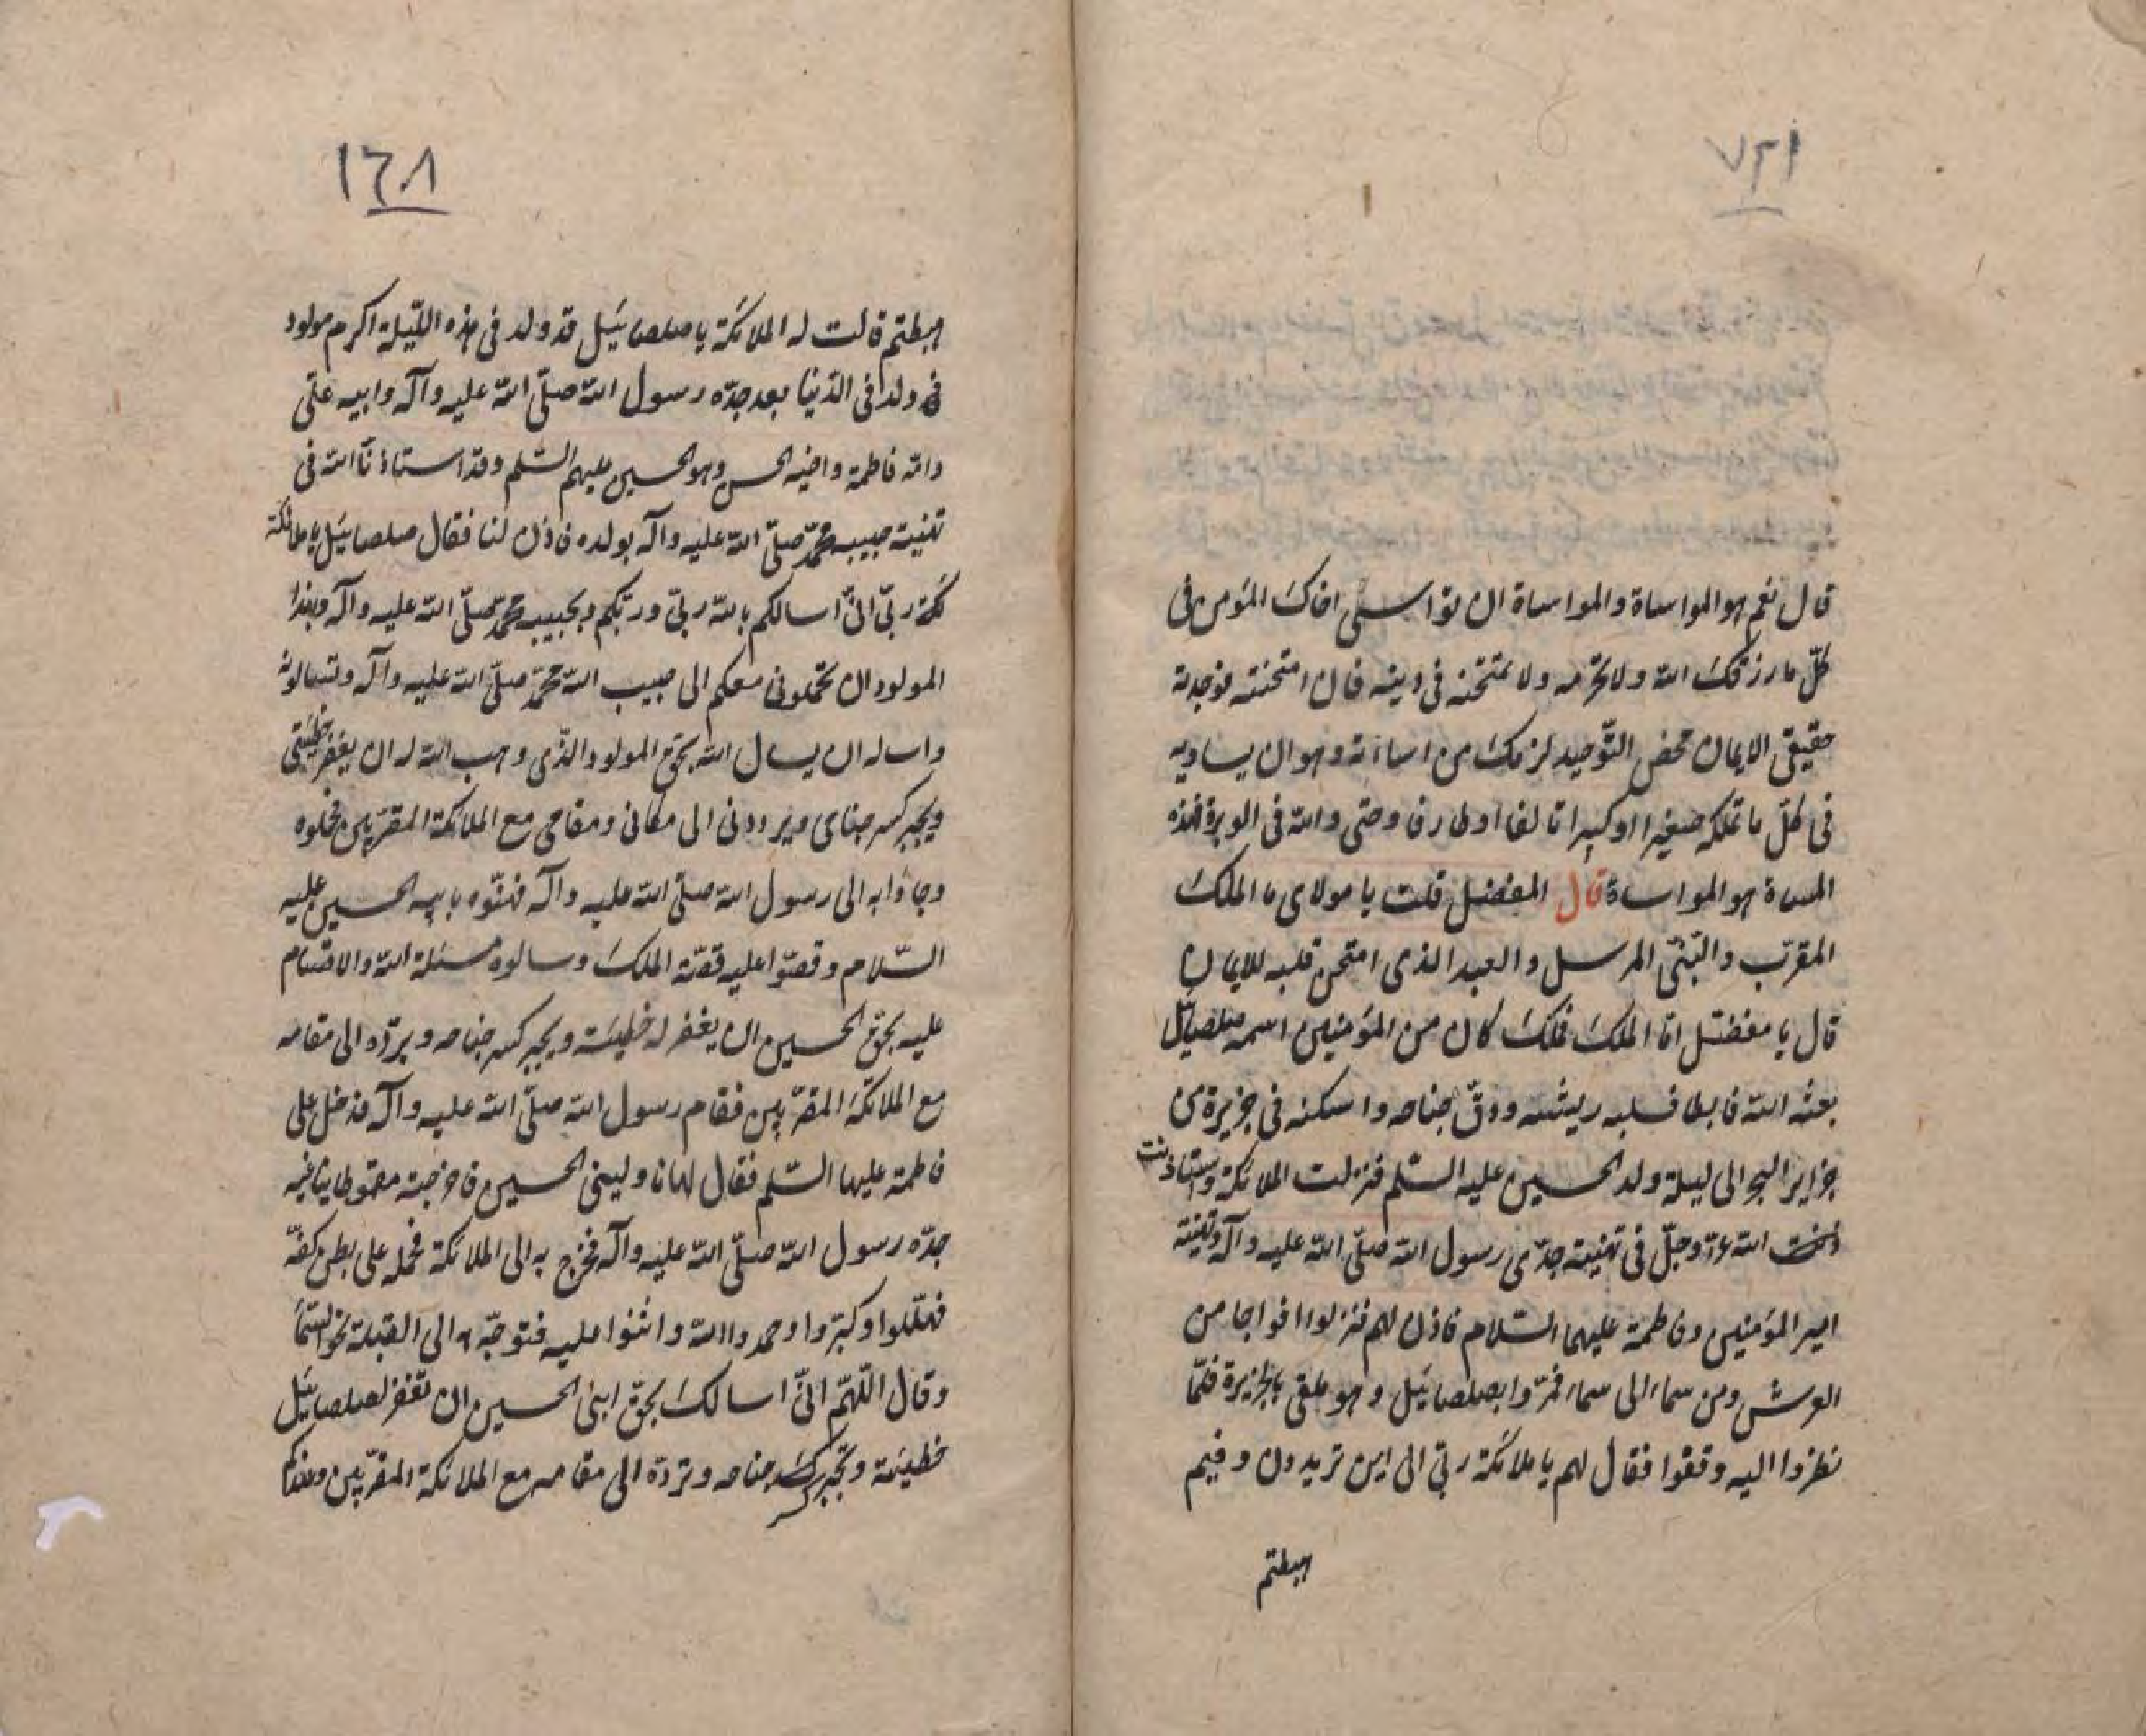 قال نعم هو المواساة والمواساة ان تواسى اخاك المؤمن فى
كلّ ما رزقك الله ولا تحرمه ولا تمتحنه فى دينه فان امتحنته فوجدته
حقيقىّ الايمان محض التّوحيد لزمك من اساءته وهو ان يساويه
فى كلّ ما تملكه صغيرا او كبيرا تالفا او طارفا وحتى والله فى الوبرة فهذه
المساة هو المواساة قال المفضل قلت يا مولاى ما الملك
المقرّب والنّبىّ المرسل والعبد الذى امتحن قلبه للايمان
قال يا مفضّل امّا الملك فملك كان من المؤمنين اسمه صلصائيل
بعثه الله فابطا فسلبه ريشه ودقّ جناحه واسكنه فى جزيرة من
جزاير البحر الى ليلة ولد الحسين عليه السّلم فنزلت الملائكة واستاذنت
الله عزّ وجلّ فى تهنية جدّى رسول الله صلّى الله عليه وآله وتهنية
امير المؤمنين وفاطمة عليهما السّلام فاذن لهم فنزلوا افواجا من
العرش ومن سماء الى سماء فمرّوا بصلصائيل وهو ملقى بالجزيرة فلمّا
نظروا اليه وقفوا فقال لهم يا ملائكة ربّى الى اين تريدون وفيم
هبطتم
١٦٨
هبطتم قالت له الملائكة يا صلصائيل قد ولد فى هذه اللّيلة اكرم مولود
ولد فى الدّنيا بعد جدّه رسول الله صلّى الله عليه وآله وابيه علىّ
وامّه فاطمة واخيه الحسن وهو الحسين عليهم السّلم وقد استاذنّا الله فى
تهنية حبيبه محمّد صلّى الله عليه وآله بولده فاذن لنا فقال صلصائيل يا ملائكة
ئكة ربّى انّى اسالكم بالله ربّى وربّكم وبحبيبه محمّد صلّى الله عليه وآله وبهذا
المولود ان تحملونى معكم الى حبيب الله محمّد صلّى الله عليه وآله وتسالونه
واساله ان يسال الله بحقّ المولود الذّى وهب الله له ان يغفر خطيئتى
ويجبر كسر جناى ويردونى الى مكانى ومقامى مع الملائكة المقرّبين فحملوه
وجاؤا به الى رسول الله صلّى الله عليه وآله فهنّوه بابنه الحسين عليه
السّلام وقصّوا عليه قصّة الملك وسالوه مسئلة الله والاقسام
عليه بحقّ الحسين ان يغفر له خطيئته ويجبر كسر جناحه ويردّه الى مقامه
مع الملائكة المقرّبين فقام رسول الله صلّى الله عليه وآله فدخل على
فاطمة عليها السّلم فقال لها ناولينى الحسين فاخرجته مقموطا يناغى
جدّه رسول الله صلّى الله عليه وآله فخرج به الى الملائكة فحمله على بطن كفّه
فهلّلوا وكبّروا وحمدوا الله واثنوا عليه فتوجّه به الى القبلة نحو السّما
وقال اللّهمّ انّى اسالك بحقّ ابنى الحسين ان تغفر لصلصائيل
خطيئته وتجبر كسر جناحه وتردّه الى مقامه مع الملائكة المقرّبين